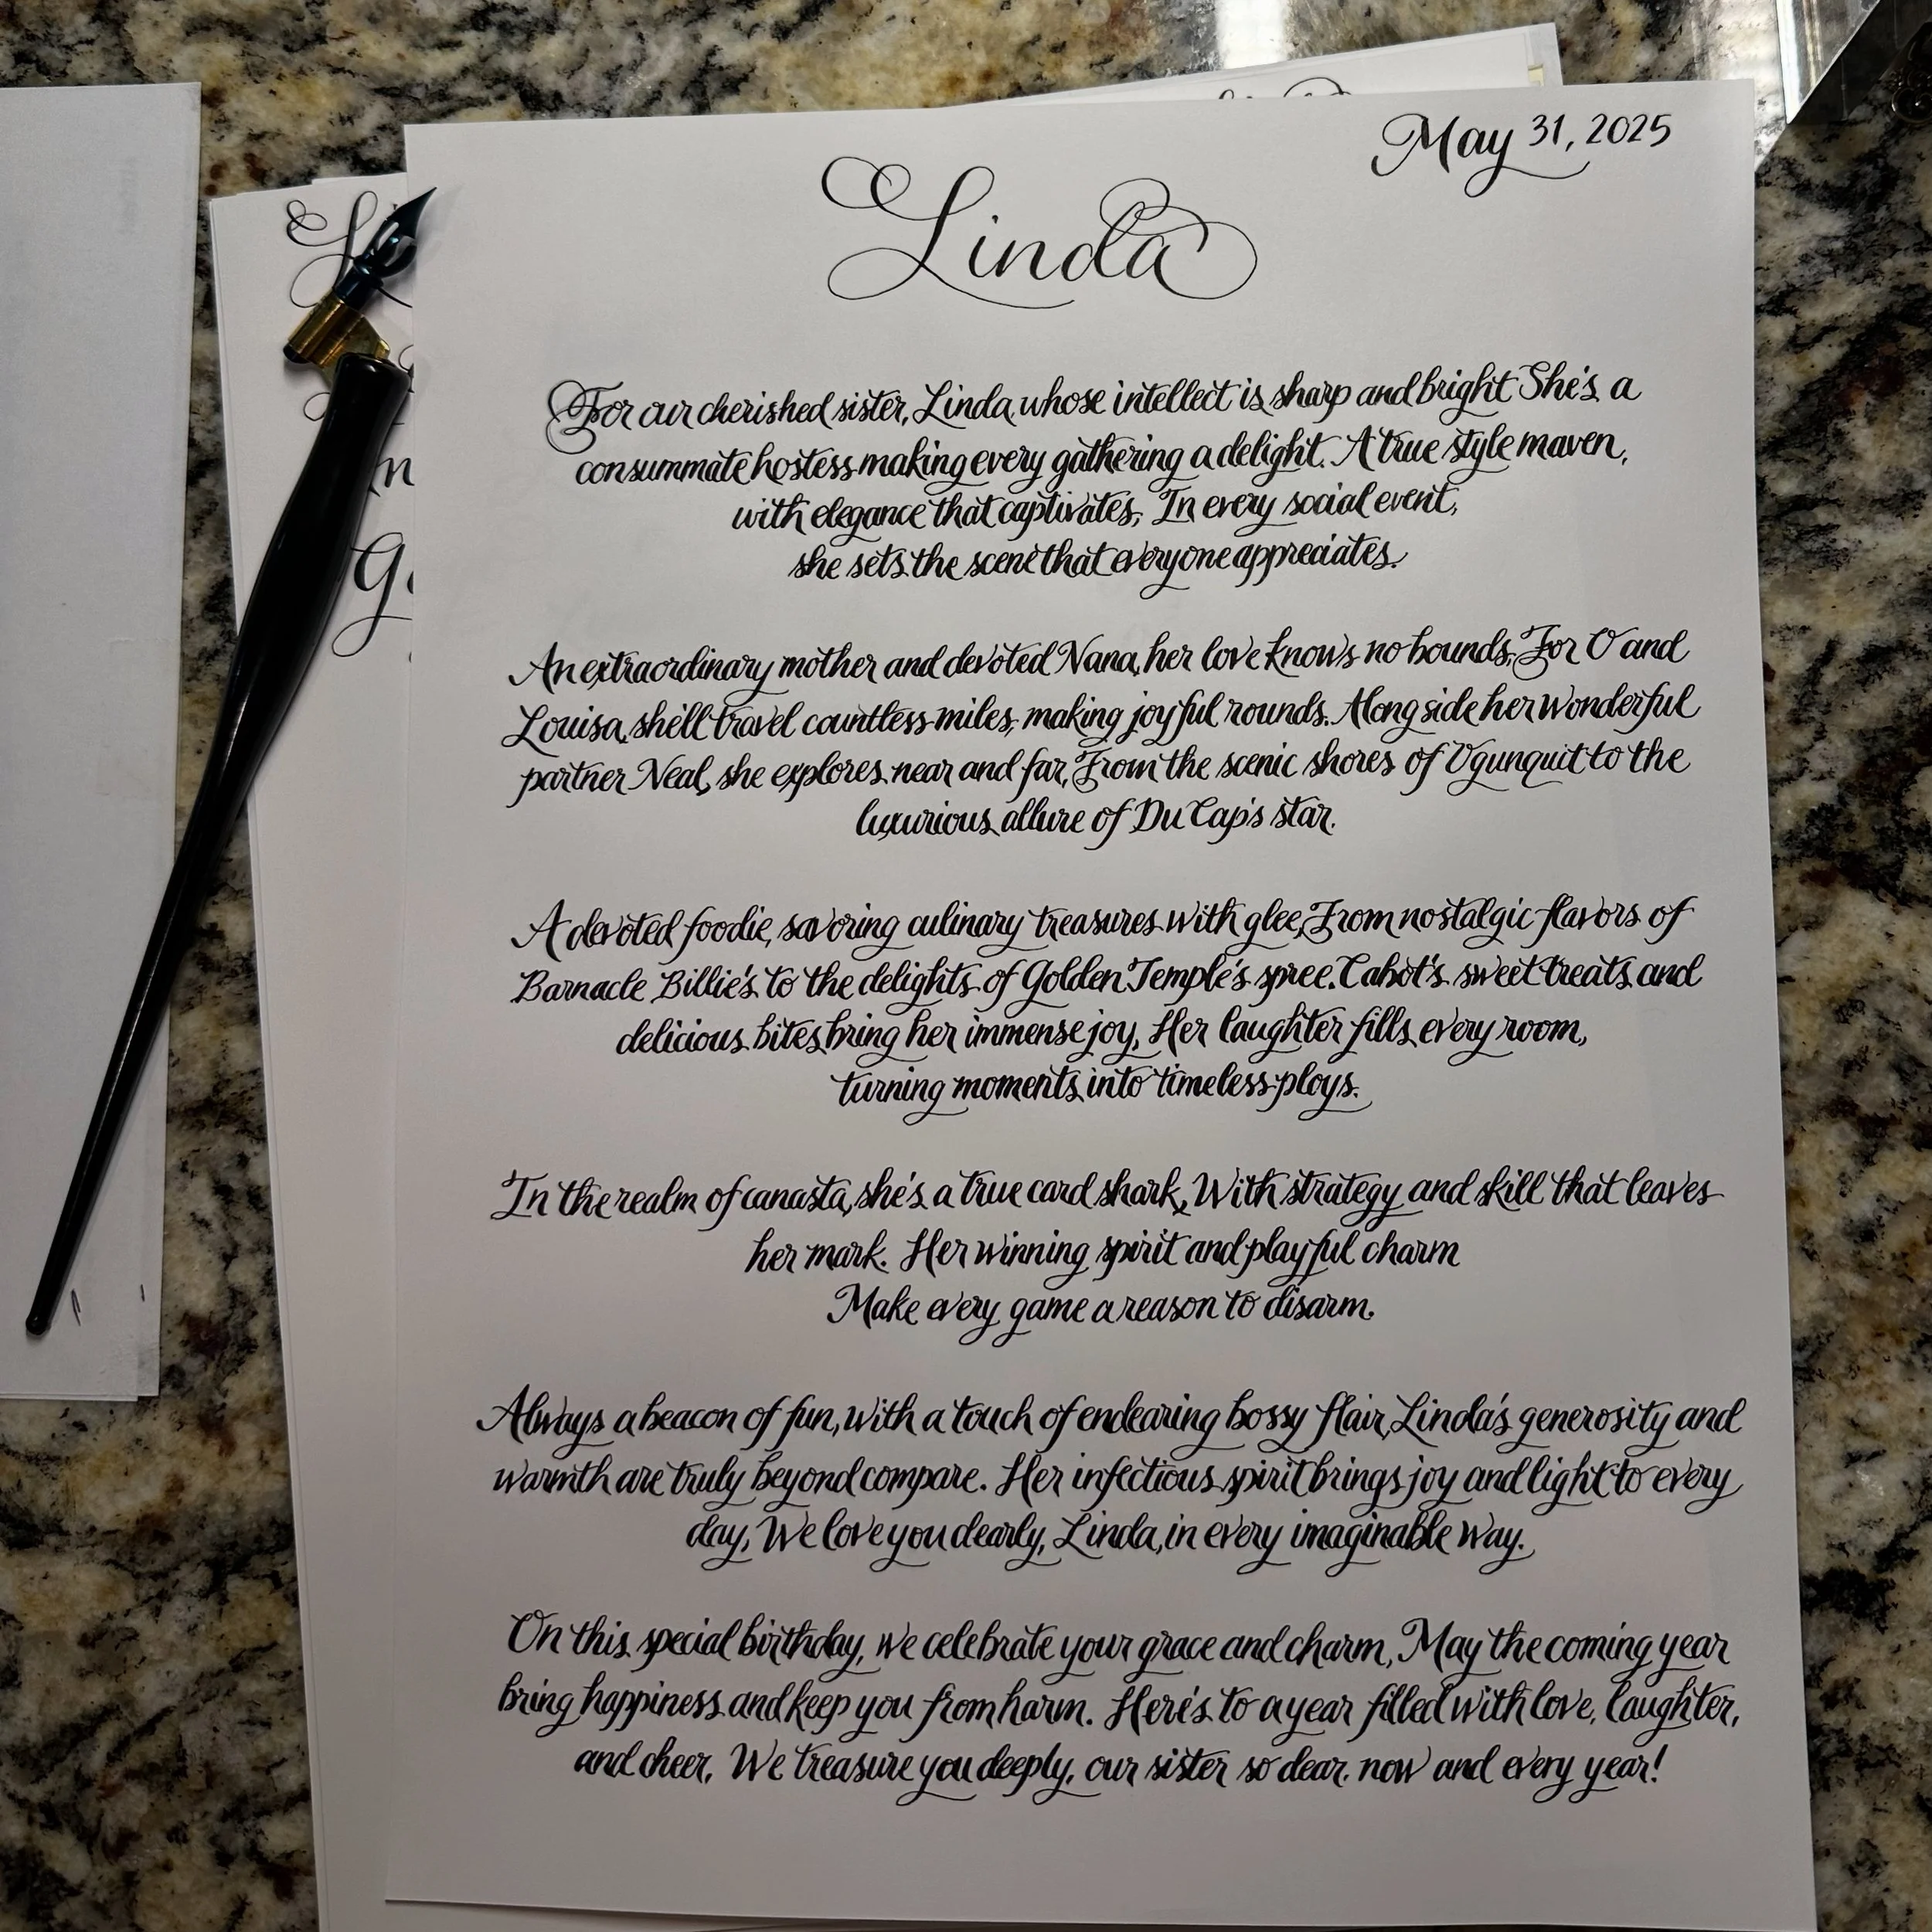 May 31, 2025
Linda
For our cherished sister, Linda, whose intellect is sharp and bright She's a
consummate hostess making every gathering a delight. A true style maven,
with elegance that captivates, In every social event,
she sets the scene that everyone appreciates.
An extraordinary mother and devoted Nana, her love knows no bounds, For O and
Louisa, she'll travel countless miles, making joyful rounds. Alongside her wonderful
partner Neal, she explores near and far, From the scenic shores of Ogunquit to the
luxurious allure of Du Cap's star.
A devoted foodie, savoring culinary treasures with glee, From nostalgic flavors of
Barnacle Billie's to the delights of Golden Temple's spree. Cabot's sweet treats and
delicious bites bring her immense joy, Her laughter fills every room,
turning moments into timeless ploys.
In the realm of canasta, she's a true card shark, With strategy and skill that leaves
her mark. Her winning spirit and playful charm
Make every game a reason to disarm.
Always a beacon of fun, with a touch of endearing bossy flair, Linda's generosity and
warmth are truly beyond compare. Her infectious spirit brings joy and light to every
day, We love you dearly, Linda, in every imaginable way.
On this special birthday, we celebrate your grace and charm, May the coming year
bring happiness and keep you from harm. Here's to a year filled with love, laughter,
and cheer, We treasure you deeply, our sister so dear, now and every year!